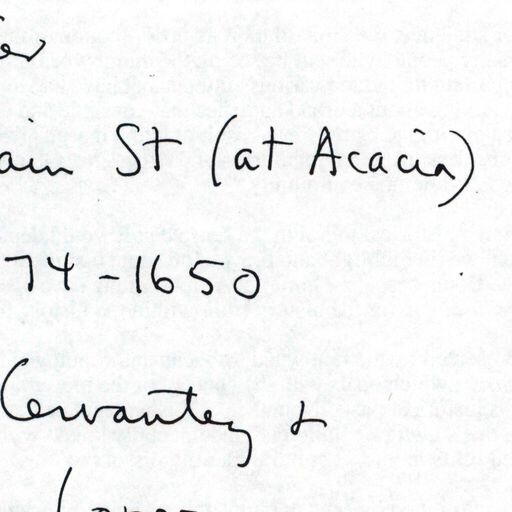 ain St (at Acacia)
74-1650
Cervantez &